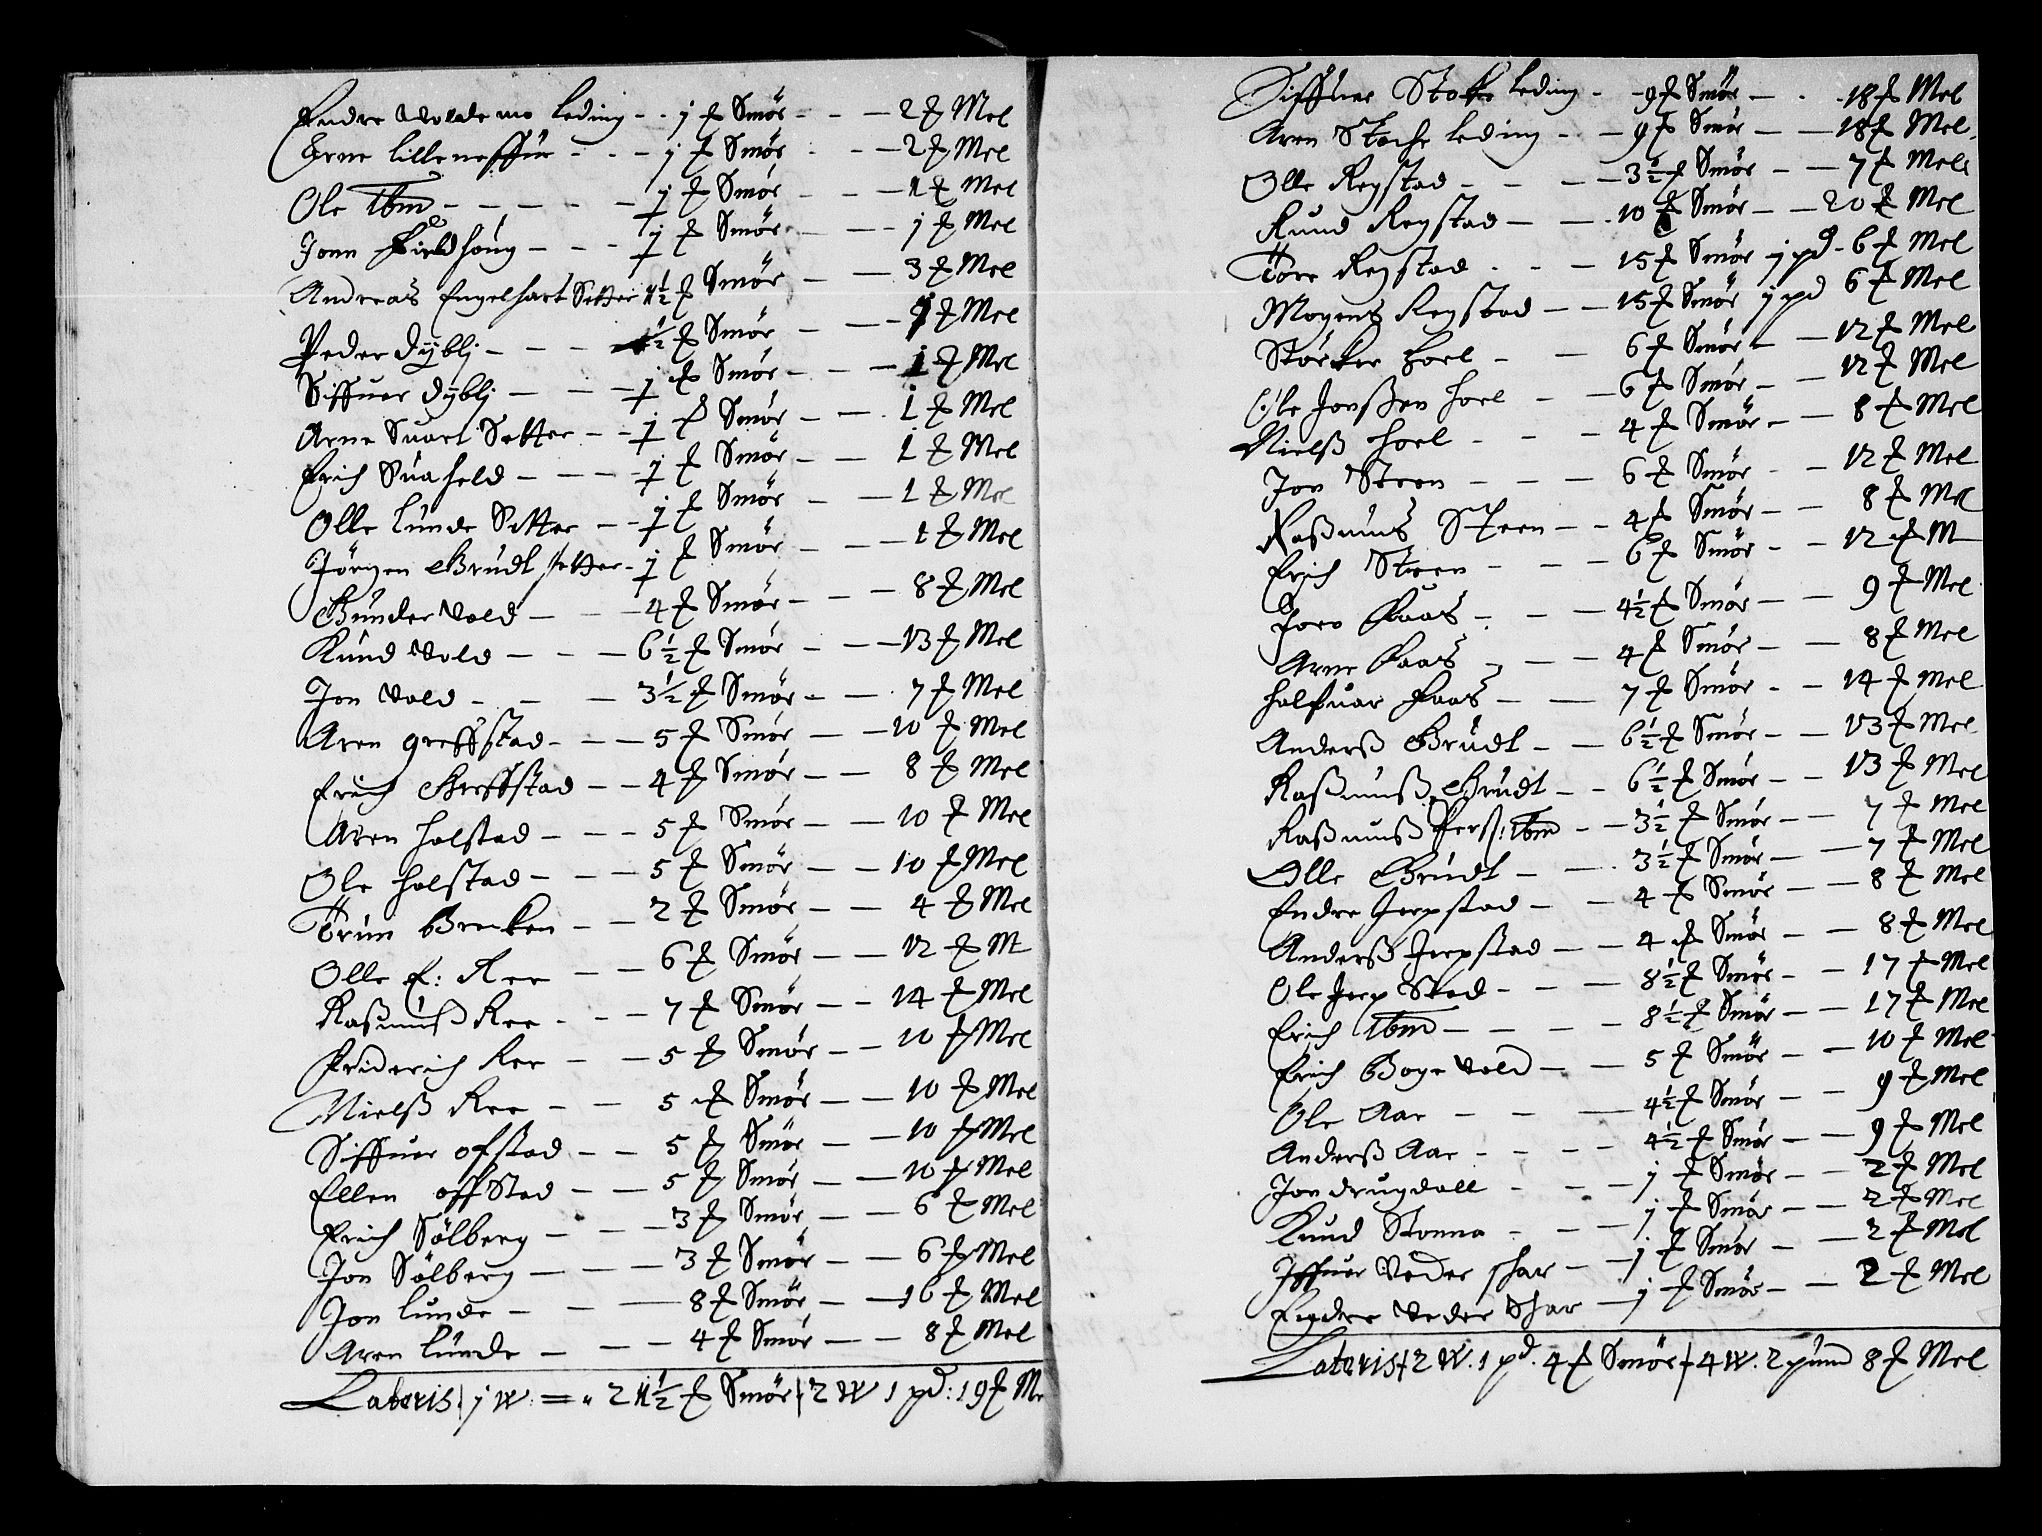 Endre Volde mo leding - - j ℔ Smör - - - 2 ℔ Mel
Arne lilleneffür - - - j ℔ Smör - - - 2 ℔ Mel
Ole Ibm - - - - - j ℔ Smör - - - 1 ℔ Mel
Jonn Fieldhoug - - - j ℔ Smör - - - j ℔ Mel
Andreas Engelhart Setter 1½ ℔ Smör - - 3 ℔ Mel
Peder dÿblj - - - ½ ℔ Smör - - - j ℔ Mel
Siffuer dÿblj - - - j ℔ Smör - - - 1 ℔ Mel
Arne Suart Setter - - j ℔ Smör - - - 1 ℔ Mel
Erich Suaheld - - - - j ℔ Smör - - 1 ℔ Mel
Olle lunde Setter - - j ℔ Smör - - 1 ℔ Mel
Jörgen Grudt setter - j ℔ Smör - - - 1 ℔ Mel
Gunder Vold - - - 4 ℔ Smör - - - 8 ℔ Mel
Knud Vold - - - 6½ ℔ Smör - - - 13 ℔ Mel
Jon Vold - - - 3½ ℔ Smör - - 7 ℔ Mel
Aren greffstad - - - 5 ℔ Smör - - 10 ℔ Mel
Erich Greffstad - - 4 ℔ Smör - - 8 ℔ Mel
Aren holstad - - - 5 ℔ Smör - - 10 ℔ Mel
Ole holstad - - - 5 ℔ Smör - - 10 ℔ Mel
Trun Brecken - - 2 ℔ Smör - - 4 ℔ Mel
Olle E: Ree - - 6 ℔ Smör - - 12 ℔ M
Raßmuß Ree - - - 7 ℔ Smör - - 14 ℔ Mel
Friderich Ree - - 5 ℔ Smör - - 10 ℔ Mel
Nielß Ree - - 5 ℔ Smör - - 10 ℔ Mel
Siffuer ofstad - - 5 ℔ Smör - - 10 ℔ Mel
Ellen offstad - - 5 ℔ Smör - - 10 ℔ Mel
Erich Sölberg - - - 3 ℔ Smör - - 6 ℔ Mel
Jon Sölberg - - - 3 ℔ Smör - - 6 ℔ Mel
Jon lunde - - - 8 ℔ Smör - - 16 ℔ Mel
Aren lunde - - - 4 ℔ Smör - - 8 ℔ Mel
Lateris / j W = " 21½ ℔ Smör / 2 W 1 pd: 19 ℔ Me
Siffuer Stoke leding - - 9 ℔ Smör - - 18 ℔ Mel
Aren Stoche leding - - 9 ℔ Smör - - 18 ℔ Mel
Olle Regstad - - - 3½ ℔ Smör - - 7 ℔ Mel
Knud Regstad - - 10 ℔ Smör - - 20 ℔ Mel
Tore Regstad - - - 15 ℔ Smör j pd - 6 ℔ Mel
Mogens Regstad - - 15 ℔ Smör j pd 6 ℔ Mel
Störker hoel - - 6 ℔ Smör - - 12 ℔ Mel
Ole Jonßen hoel - - 6 ℔ Smör - - 12 ℔ Mel
Nielß hoel - - - 4 ℔ Smör - - 8 ℔ Mel
Jon Steen - - - 6 ℔ Smör - - 12 ℔ Mel
Raßmus Steen - - 4 ℔ Smör - - 8 ℔ Mel
Erich Steen - - - 6 ℔ Smör - - 12 ℔ M
Joen Aaas - - - 4½ ℔ Smör - - 9 ℔ Mel
Arne Aaas - - - 4 ℔ Smör - - 8 ℔ Mel
halfuar Aaas - - 7 ℔ Smör - - 14 ℔ Mel
Anderß Grudt - - 6½ ℔ Smör - - 13 ℔ Mel
Raßmuß Grudt - - 6½ ℔ Smör - - 13 ℔ Mel
Raßmuß Perß: Ibm - - 3½ ℔ Smör - - 7 ℔ Mel
Olle Grudt - - 3½ ℔ Smör - - 7 ℔ Mel
Endre Jerpstad - - 4 ℔ Smör - - 8 ℔ Mel
Anderß Jerpstad - - 4 ℔ Smör - - 8 ℔ Mel
Ole Jerp Stad - - - 8½ ℔ Smör - - 17 ℔ Mel
Erich Ibm - - - - 8½ ℔ Smör - - 17 ℔ Mel
Erich Boge Vold - - 5 ℔ Smör - - 10 ℔ Mel
Ole Aae - - - 4½ ℔ Smör - - 9 ℔ Mel
Anderß Aae - - - - 4½ ℔ Smör - - 9 ℔ Mel
Jon drugdall - - - j ℔ Smör - - 2 ℔ Mel
Knud Stenna - - - j ℔ Smör - - 2 ℔ Mel
Iffuer Veder schar - - j ℔ Smör - - 2 ℔ Mel
Engdre Veder Schar - j ℔ Smör - - 2 ℔ Mel
Lateris / 2 W. 1 pd. 4 ℔ Smör / 4 W. 2 pund 8 ℔ Mel